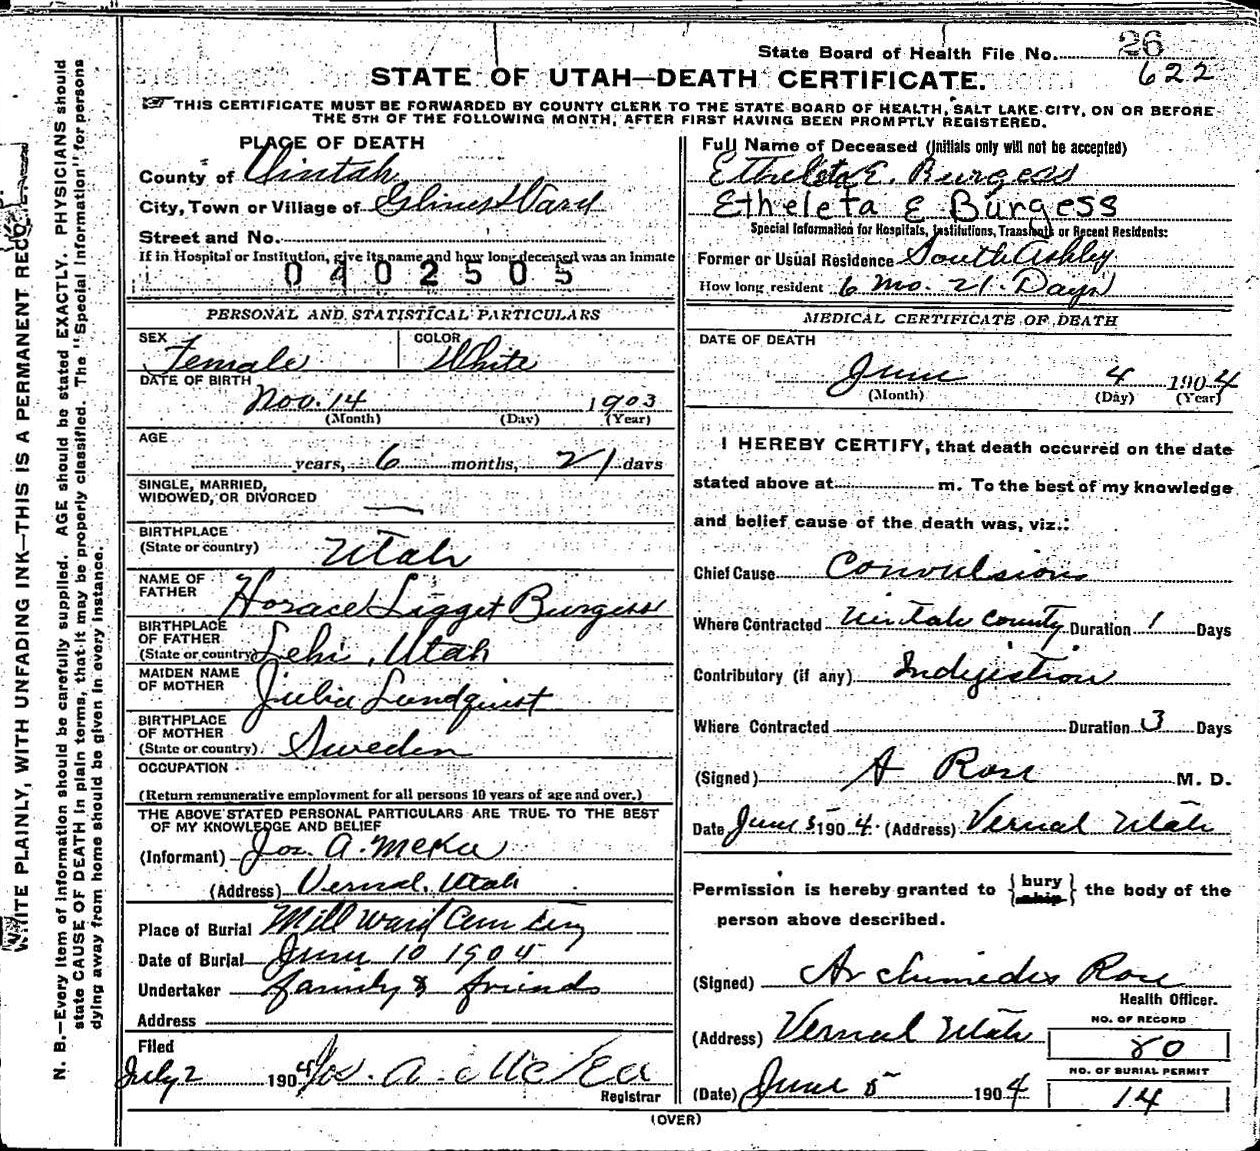 State Board of Health File No. 26
622
STATE OF UTAH—DEATH CERTIFICATE.
THIS CERTIFICATE MUST BE FORWARDED BY COUNTY CLERK TO THE STATE BOARD OF HEALTH, SALT LAKE CITY, ON OR BEFORE
THE 5TH OF THE FOLLOWING MONTH, AFTER FIRST HAVING BEEN PROMPTLY REGISTERED.
WRITE PLAINLY, WITH UNFADING INK—THIS IS A PERMANENT RECORD
N. B.—Every item of information should be carefully supplied. AGE should be stated EXACTLY. PHYSICIANS should
state CAUSE OF DEATH in plain terms, that it may be properly classified. The "Special Information" for persons
dying away from home should be given in every instance.
PLACE OF DEATH
County of Uintah
City, Town or Village of Glines Ward
Street and No.
If in Hospital or Institution, give its name and how long deceased was an inmate
0402505
PERSONAL AND STATISTICAL PARTICULARS
SEX Female COLOR White
DATE OF BIRTH
Nov. 14 1903
(Month) (Day) (Year)
AGE
years, 6 months, 21 days
SINGLE, MARRIED,
WIDOWED, OR DIVORCED —
BIRTHPLACE
(State or country) Utah
NAME OF
FATHER Horace Ligget Burgess
BIRTHPLACE
OF FATHER
(State or country) Lehi, Utah
MAIDEN NAME
OF MOTHER Julia Lundquist
BIRTHPLACE
OF MOTHER
(State or country) Sweden
OCCUPATION
(Return remunerative employment for all persons 10 years of age and over.)
THE ABOVE STATED PERSONAL PARTICULARS ARE TRUE TO THE BEST
OF MY KNOWLEDGE AND BELIEF
(Informant) Jos. A. McKee
(Address) Vernal, Utah
Place of Burial Mill Ward Cemetery
Date of Burial June 10 1904
Undertaker family & friends
Address
Filed
July 2 1904 Jos. A. McKee
Registrar
Full Name of Deceased (Initials only will not be accepted)
Etheleta E. Burgess
Etheleta E Burgess
Special Information for Hospitals, Institutions, Transients or Recent Residents:
Former or Usual Residence South Ashley
How long resident 6 mo. 21. Days
MEDICAL CERTIFICATE OF DEATH
DATE OF DEATH
June 4 1904
(Month) (Day) (Year)
I HEREBY CERTIFY, that death occurred on the date
stated above at m. To the best of my knowledge
and belief cause of the death was, viz.:
Chief Cause Convulsions
Where Contracted Uintah County Duration 1 Days
Contributory (if any) Indigestion
Where Contracted Duration 3 Days
(Signed) A Rose M. D.
Date June 5 1904. (Address) Vernal Utah
Permission is hereby granted to {bury ship} the body of the
person above described.
(Signed) Archimedes Rose
Health Officer.
(Address) Vernal Utah
NO. OF RECORD
80
NO. OF BURIAL PERMIT
14
(Date) June 5 1904
(OVER)